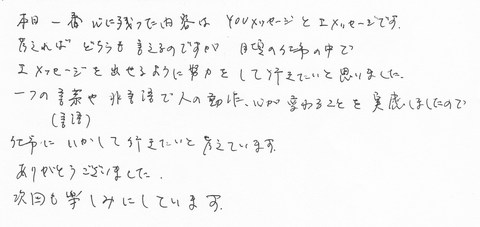 本日一番心に残った内容は YOUメッセージとIメッセージです.
考えれば どちらも言えるのですが 日頃の仕事の中で
Iメッセージを出せるように努力をして行きたいと思いました.
一つの言葉や非言語で人の動作、心が変わることを実感しましたので
(言語)
仕事にいかして行きたいと考えています.
ありがとうございました.
次回も楽しみにしています.